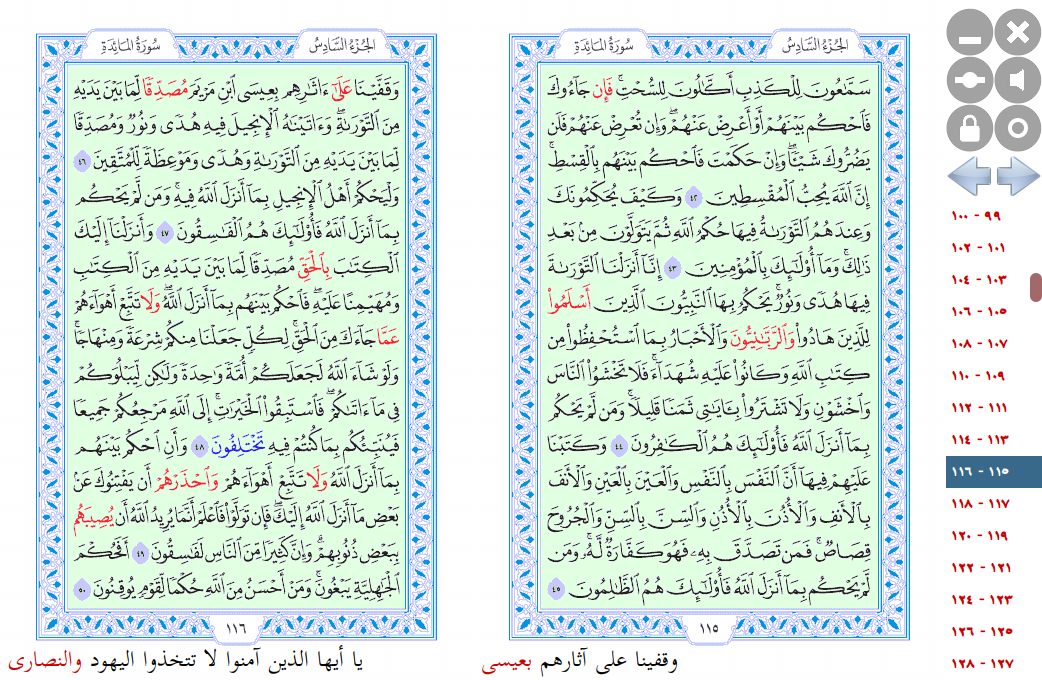 الجزء السادس
سورة المائدة
سَمَّٰعُونَ لِلْكَذِبِ أَكَّٰلُونَ لِلسُّحْتِ ۚ فَإِن جَآءُوكَ
فَٱحْكُم بَيْنَهُمْ أَوْ أَعْرِضْ عَنْهُمْ ۖ وَإِن تُعْرِضْ عَنْهُمْ فَلَن
يَضُرُّوكَ شَيْـًٔا ۖ وَإِنْ حَكَمْتَ فَٱحْكُم بَيْنَهُم بِٱلْقِسْطِ ۚ
إِنَّ ٱللَّهَ يُحِبُّ ٱلْمُقْسِطِينَ ٤٢ وَكَيْفَ يُحَكِّمُونَكَ
وَعِندَهُمُ ٱلتَّوْرَىٰةُ فِيهَا حُكْمُ ٱللَّهِ ثُمَّ يَتَوَلَّوْنَ مِنۢ بَعْدِ
ذَٰلِكَ ۚ وَمَآ أُو۟لَٰٓئِكَ بِٱلْمُؤْمِنِينَ ٤٣ إِنَّآ أَنزَلْنَا ٱلتَّوْرَىٰةَ
فِيهَا هُدًى وَنُورٌ ۚ يَحْكُمُ بِهَا ٱلنَّبِيُّونَ ٱلَّذِينَ أَسْلَمُوا۟
لِلَّذِينَ هَادُوا۟ وَٱلرَّبَّٰنِيُّونَ وَٱلْأَحْبَارُ بِمَا ٱسْتُحْفِظُوا۟ مِن
كِتَٰبِ ٱللَّهِ وَكَانُوا۟ عَلَيْهِ شُهَدَآءَ ۚ فَلَا تَخْشَوُا۟ ٱلنَّاسَ
وَٱخْشَوْنِ وَلَا تَشْتَرُوا۟ بِـَٔايَٰتِى ثَمَنًا قَلِيلًا ۚ وَمَن لَّمْ يَحْكُم
بِمَآ أَنزَلَ ٱللَّهُ فَأُو۟لَٰٓئِكَ هُمُ ٱلْكَٰفِرُونَ ٤٤ وَكَتَبْنَا
عَلَيْهِمْ فِيهَآ أَنَّ ٱلنَّفْسَ بِٱلنَّفْسِ وَٱلْعَيْنَ بِٱلْعَيْنِ وَٱلْأَنفَ
بِٱلْأَنفِ وَٱلْأُذُنَ بِٱلْأُذُنِ وَٱلسِّنَّ بِٱلسِّنِّ وَٱلْجُرُوحَ
قِصَاصٌ ۚ فَمَن تَصَدَّقَ بِهِۦ فَهُوَ كَفَّارَةٌ لَّهُۥ ۚ وَمَن
لَّمْ يَحْكُم بِمَآ أَنزَلَ ٱللَّهُ فَأُو۟لَٰٓئِكَ هُمُ ٱلظَّٰلِمُونَ ٤٥
١١٥
وقفينا على آثارهم بعيسى
الجزء السادس
سورة المائدة
وَقَفَّيْنَا عَلَىٰٓ ءَاثَٰرِهِم بِعِيسَى ٱبْنِ مَرْيَمَ مُصَدِّقًا لِّمَا بَيْنَ يَدَيْهِ
مِنَ ٱلتَّوْرَىٰةِ ۖ وَءَاتَيْنَٰهُ ٱلْإِنجِيلَ فِيهِ هُدًى وَنُورٌ وَمُصَدِّقًا
لِّمَا بَيْنَ يَدَيْهِ مِنَ ٱلتَّوْرَىٰةِ وَهُدًى وَمَوْعِظَةً لِّلْمُتَّقِينَ ٤٦
وَلْيَحْكُمْ أَهْلُ ٱلْإِنجِيلِ بِمَآ أَنزَلَ ٱللَّهُ فِيهِ ۚ وَمَن لَّمْ يَحْكُم
بِمَآ أَنزَلَ ٱللَّهُ فَأُو۟لَٰٓئِكَ هُمُ ٱلْفَٰسِقُونَ ٤٧ وَأَنزَلْنَآ إِلَيْكَ
ٱلْكِتَٰبَ بِٱلْحَقِّ مُصَدِّقًا لِّمَا بَيْنَ يَدَيْهِ مِنَ ٱلْكِتَٰبِ
وَمُهَيْمِنًا عَلَيْهِ ۖ فَٱحْكُم بَيْنَهُم بِمَآ أَنزَلَ ٱللَّهُ ۖ وَلَا تَتَّبِعْ أَهْوَآءَهُمْ
عَمَّا جَآءَكَ مِنَ ٱلْحَقِّ ۚ لِكُلٍّ جَعَلْنَا مِنكُمْ شِرْعَةً وَمِنْهَاجًا ۚ
وَلَوْ شَآءَ ٱللَّهُ لَجَعَلَكُمْ أُمَّةً وَٰحِدَةً وَلَٰكِن لِّيَبْلُوَكُمْ
فِى مَآ ءَاتَىٰكُمْ ۖ فَٱسْتَبِقُوا۟ ٱلْخَيْرَٰتِ ۚ إِلَى ٱللَّهِ مَرْجِعُكُمْ جَمِيعًا
فَيُنَبِّئُكُم بِمَا كُنتُمْ فِيهِ تَخْتَلِفُونَ ٤٨ وَأَنِ ٱحْكُم بَيْنَهُم
بِمَآ أَنزَلَ ٱللَّهُ وَلَا تَتَّبِعْ أَهْوَآءَهُمْ وَٱحْذَرْهُمْ أَن يَفْتِنُوكَ عَنۢ
بَعْضِ مَآ أَنزَلَ ٱللَّهُ إِلَيْكَ ۖ فَإِن تَوَلَّوْا۟ فَٱعْلَمْ أَنَّمَا يُرِيدُ ٱللَّهُ أَن يُصِيبَهُم
بِبَعْضِ ذُنُوبِهِمْ ۗ وَإِنَّ كَثِيرًا مِّنَ ٱلنَّاسِ لَفَٰسِقُونَ ٤٩ أَفَحُكْمَ
ٱلْجَٰهِلِيَّةِ يَبْغُونَ ۚ وَمَنْ أَحْسَنُ مِنَ ٱللَّهِ حُكْمًا لِّقَوْمٍ يُوقِنُونَ ٥٠
١١٦
يا أيها الذين آمنوا لا تتخذوا اليهود والنصارى
٩٩ - ١٠٠
١٠١ - ١٠٢
١٠٣ - ١٠٤
١٠٥ - ١٠٦
١٠٧ - ١٠٨
١٠٩ - ١١٠
١١١ - ١١٢
١١٣ - ١١٤
١١٥ - ١١٦
١١٧ - ١١٨
١١٩ - ١٢٠
١٢١ - ١٢٢
١٢٣ - ١٢٤
١٢٥ - ١٢٦
١٢٧ - ١٢٨